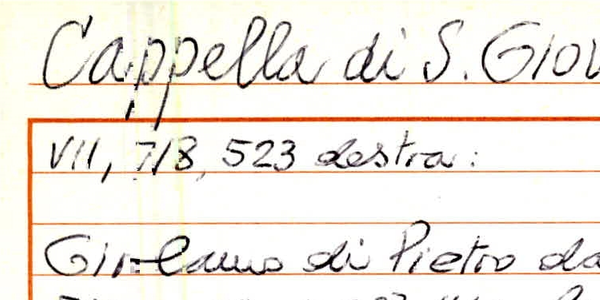 Cappella di S. Giov
VII, 7/8, 523 destra:
Girolamo di Pietro da